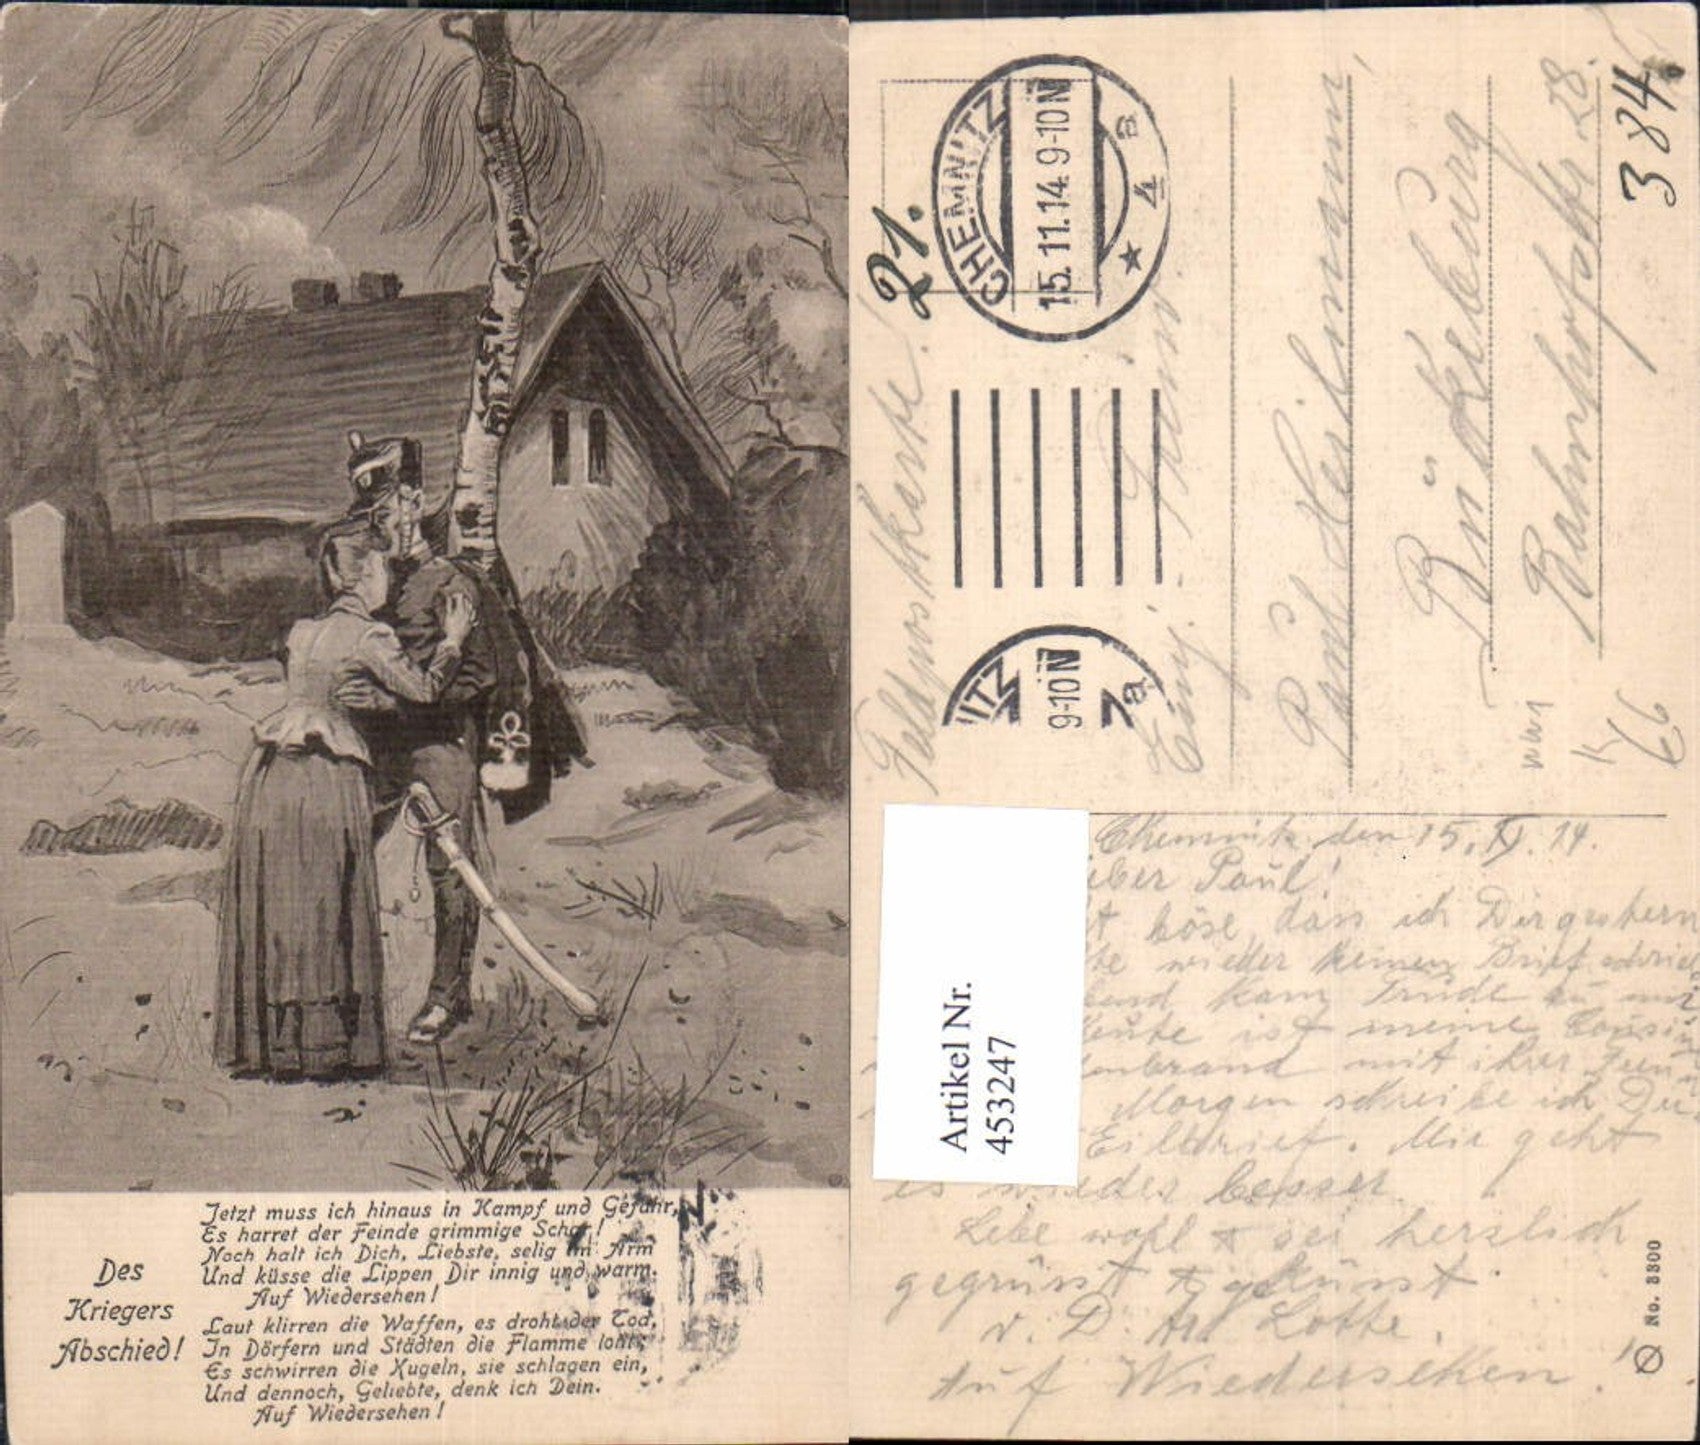 Des
Kriegers
Abschied!
Jetzt muss ich hinaus in Kampf und Gefahr,
Es harret der Feinde grimmige Schar!
Noch halt ich Dich, Liebste, selig im Arm
Und küsse die Lippen Dir innig und warm.
Auf Wiedersehen!
Laut klirren die Waffen, es droht der Tod,
In Dörfern und Städten die Flamme loht;
Es schwirren die Kugeln, sie schlagen ein,
Und dennoch, Geliebte, denk ich Dein.
Auf Wiedersehen!
Feldpostkarte!
21.
CHEMNITZ
15.11.14 9-10N
* 4 a
NITZ
9-10N
7a
Paul Heilmann
Bückeburg
Bahnhofstr 28.
384.
66
Artikel Nr.
453247
Chemnitz, den 15. XI. 14.
Paul!
böse, dass ich Dir gestern
wieder keinen Brief schrieb
kam Trude zu mir
Heute ist meine Cousi
mit ihrer
Morgen schreibe ich Dir
Eilbrief. Mir geht
es wieder besser.
Lebe wohl & sei herzlich
gegrüsst & geküsst
v. D. Lotte.
Auf Wiedersehen!
No. 3300